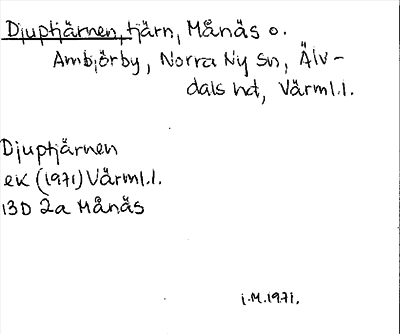 Djuptjärnen, tjärn, Månäs o.
Ambjörby, Norra Ny sn, Älv-
dals hd, Värml.l.
Djuptjärnen
ek (1971) Värml.l.
13D 2a Månäs
i.M.1971.